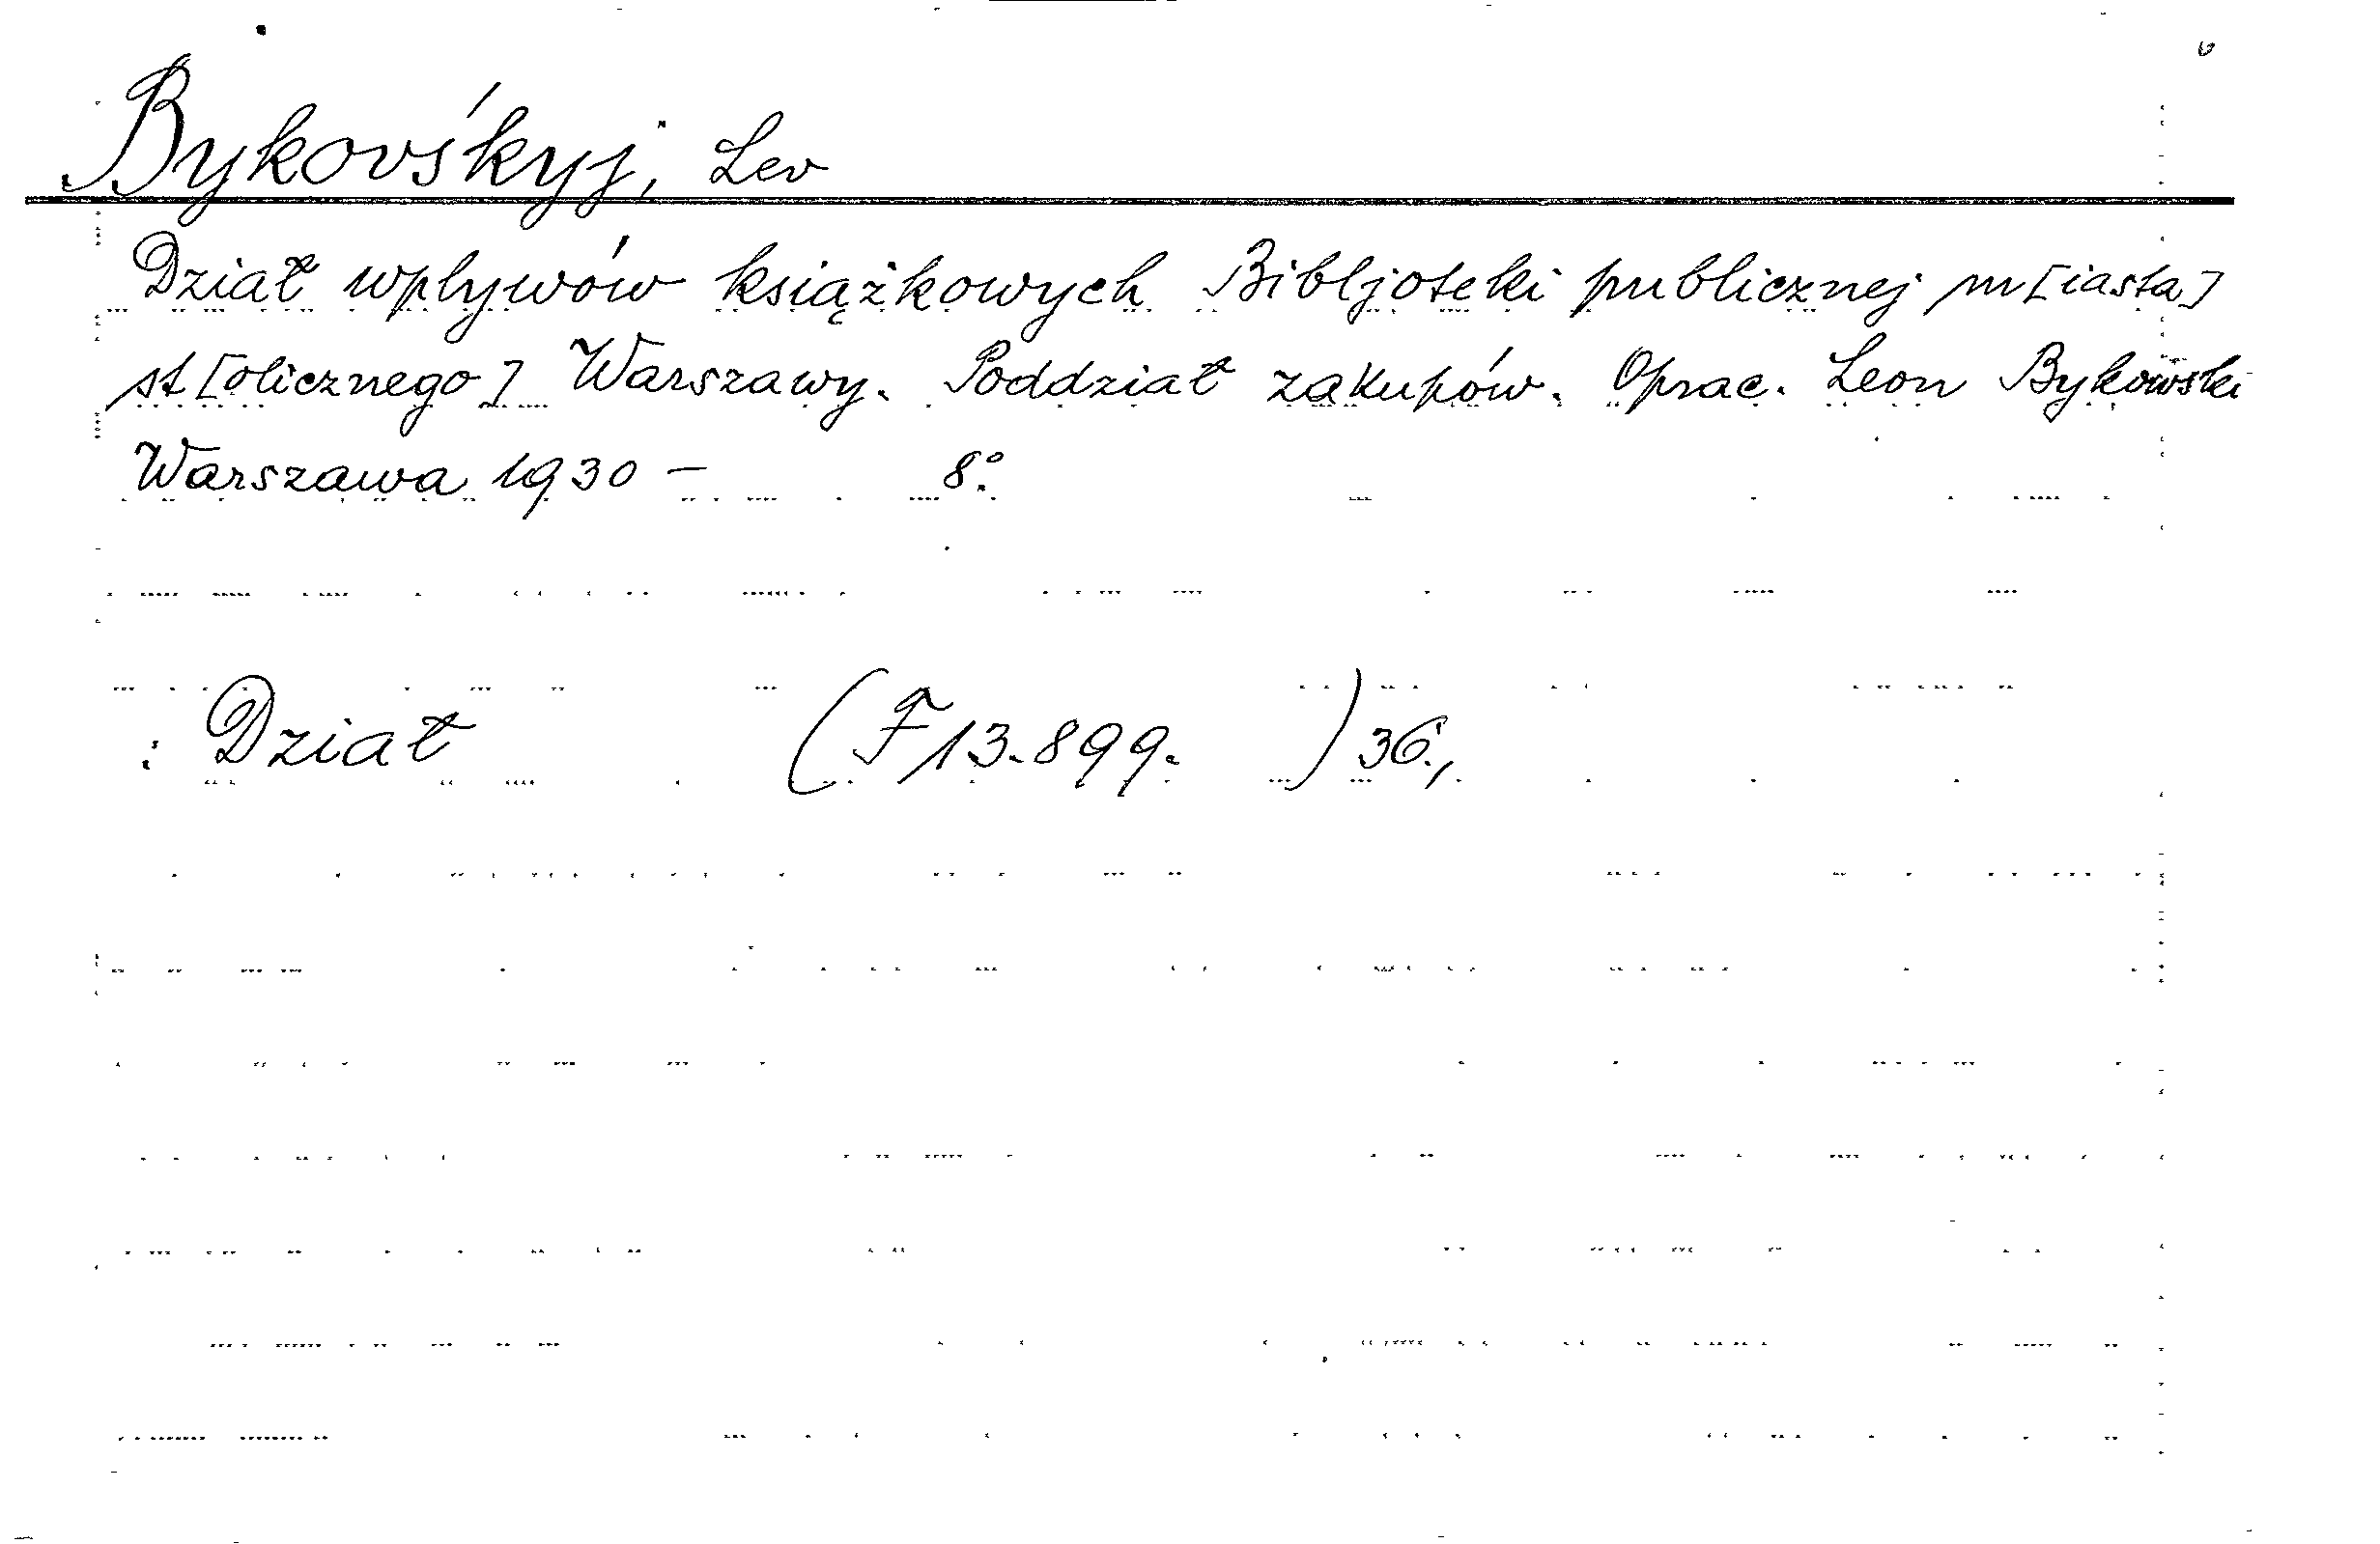 Bykovśkyj, Lev
Dział wpływów książkowych Bibljoteki publicznej m[iasta]
st[ołicznego] Warszawy. Poddział zakupów. Oprac. Leon Bykowski
Warszawa 1930 – 8°.
: Dział (F 13.899. ) 36.,